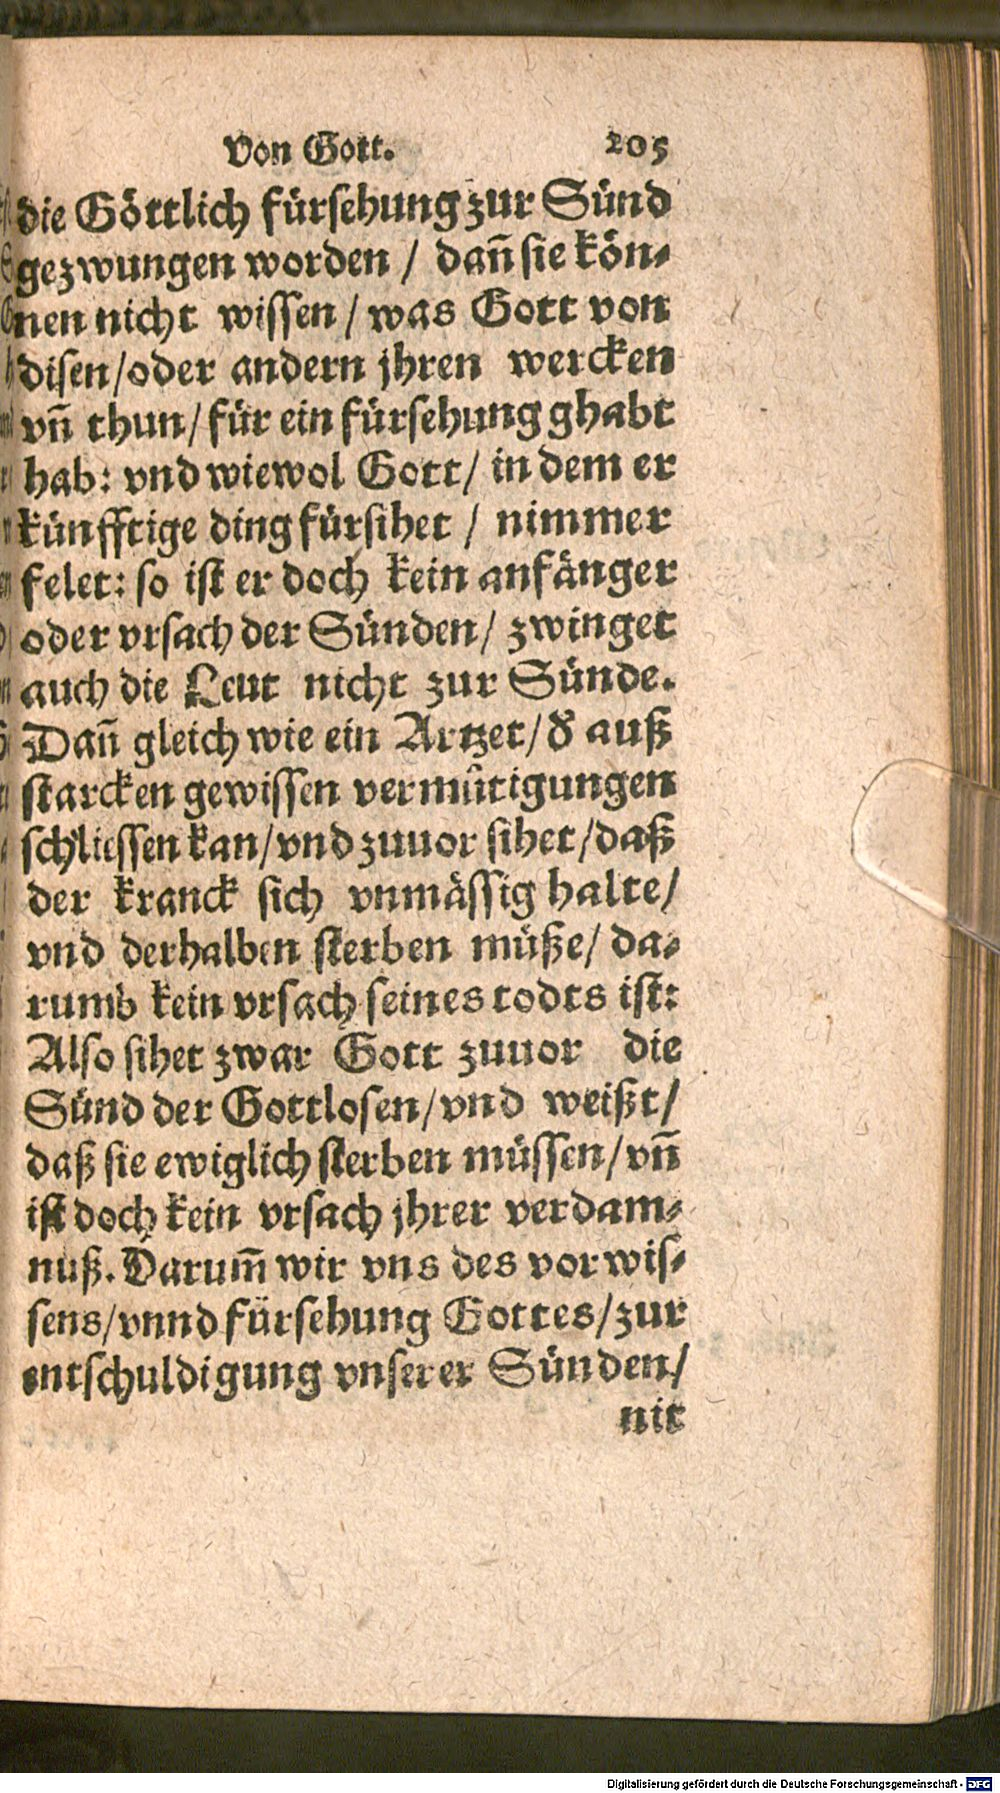 Von Gott. 205
die Göttlich fürsehung zur Sünd
gezwungen worden / dañ sie kön⸗
nen nicht wissen / was Gott von
disen / oder andern jhren wercken
vñ thun / für ein fürsehung ghabt
hab: vnd wiewol Gott / in dem er
künfftige ding fürsihet / nimmer
felet: so ist er doch kein anfänger
oder vrsach der Sünden / zwinget
auch die Leut nicht zur Sünde.
Dañ gleich wie ein Artzet / d̕ auß
starcken gewissen vermůtigungen
schliessen kan / vnd zuuor sihet / daß
der kranck sich vnmässig halte /
vnd derhalben sterben müße / da⸗
rumb kein vrsach seines todts ist:
Also sihet zwar Gott zuuor die
Sünd der Gottlosen / vnd weißt /
daß sie ewiglich sterben müssen / vñ
ist doch kein vrsach jhrer verdam⸗
nuß. Darum̃ wir vns des vorwis⸗
sens / vnnd fürsehung Gottes / zur
entschuldigung vnserer Sünden /
nit
Digitalisierung gefördert durch die Deutsche Forschungsgemeinschaft - DFG